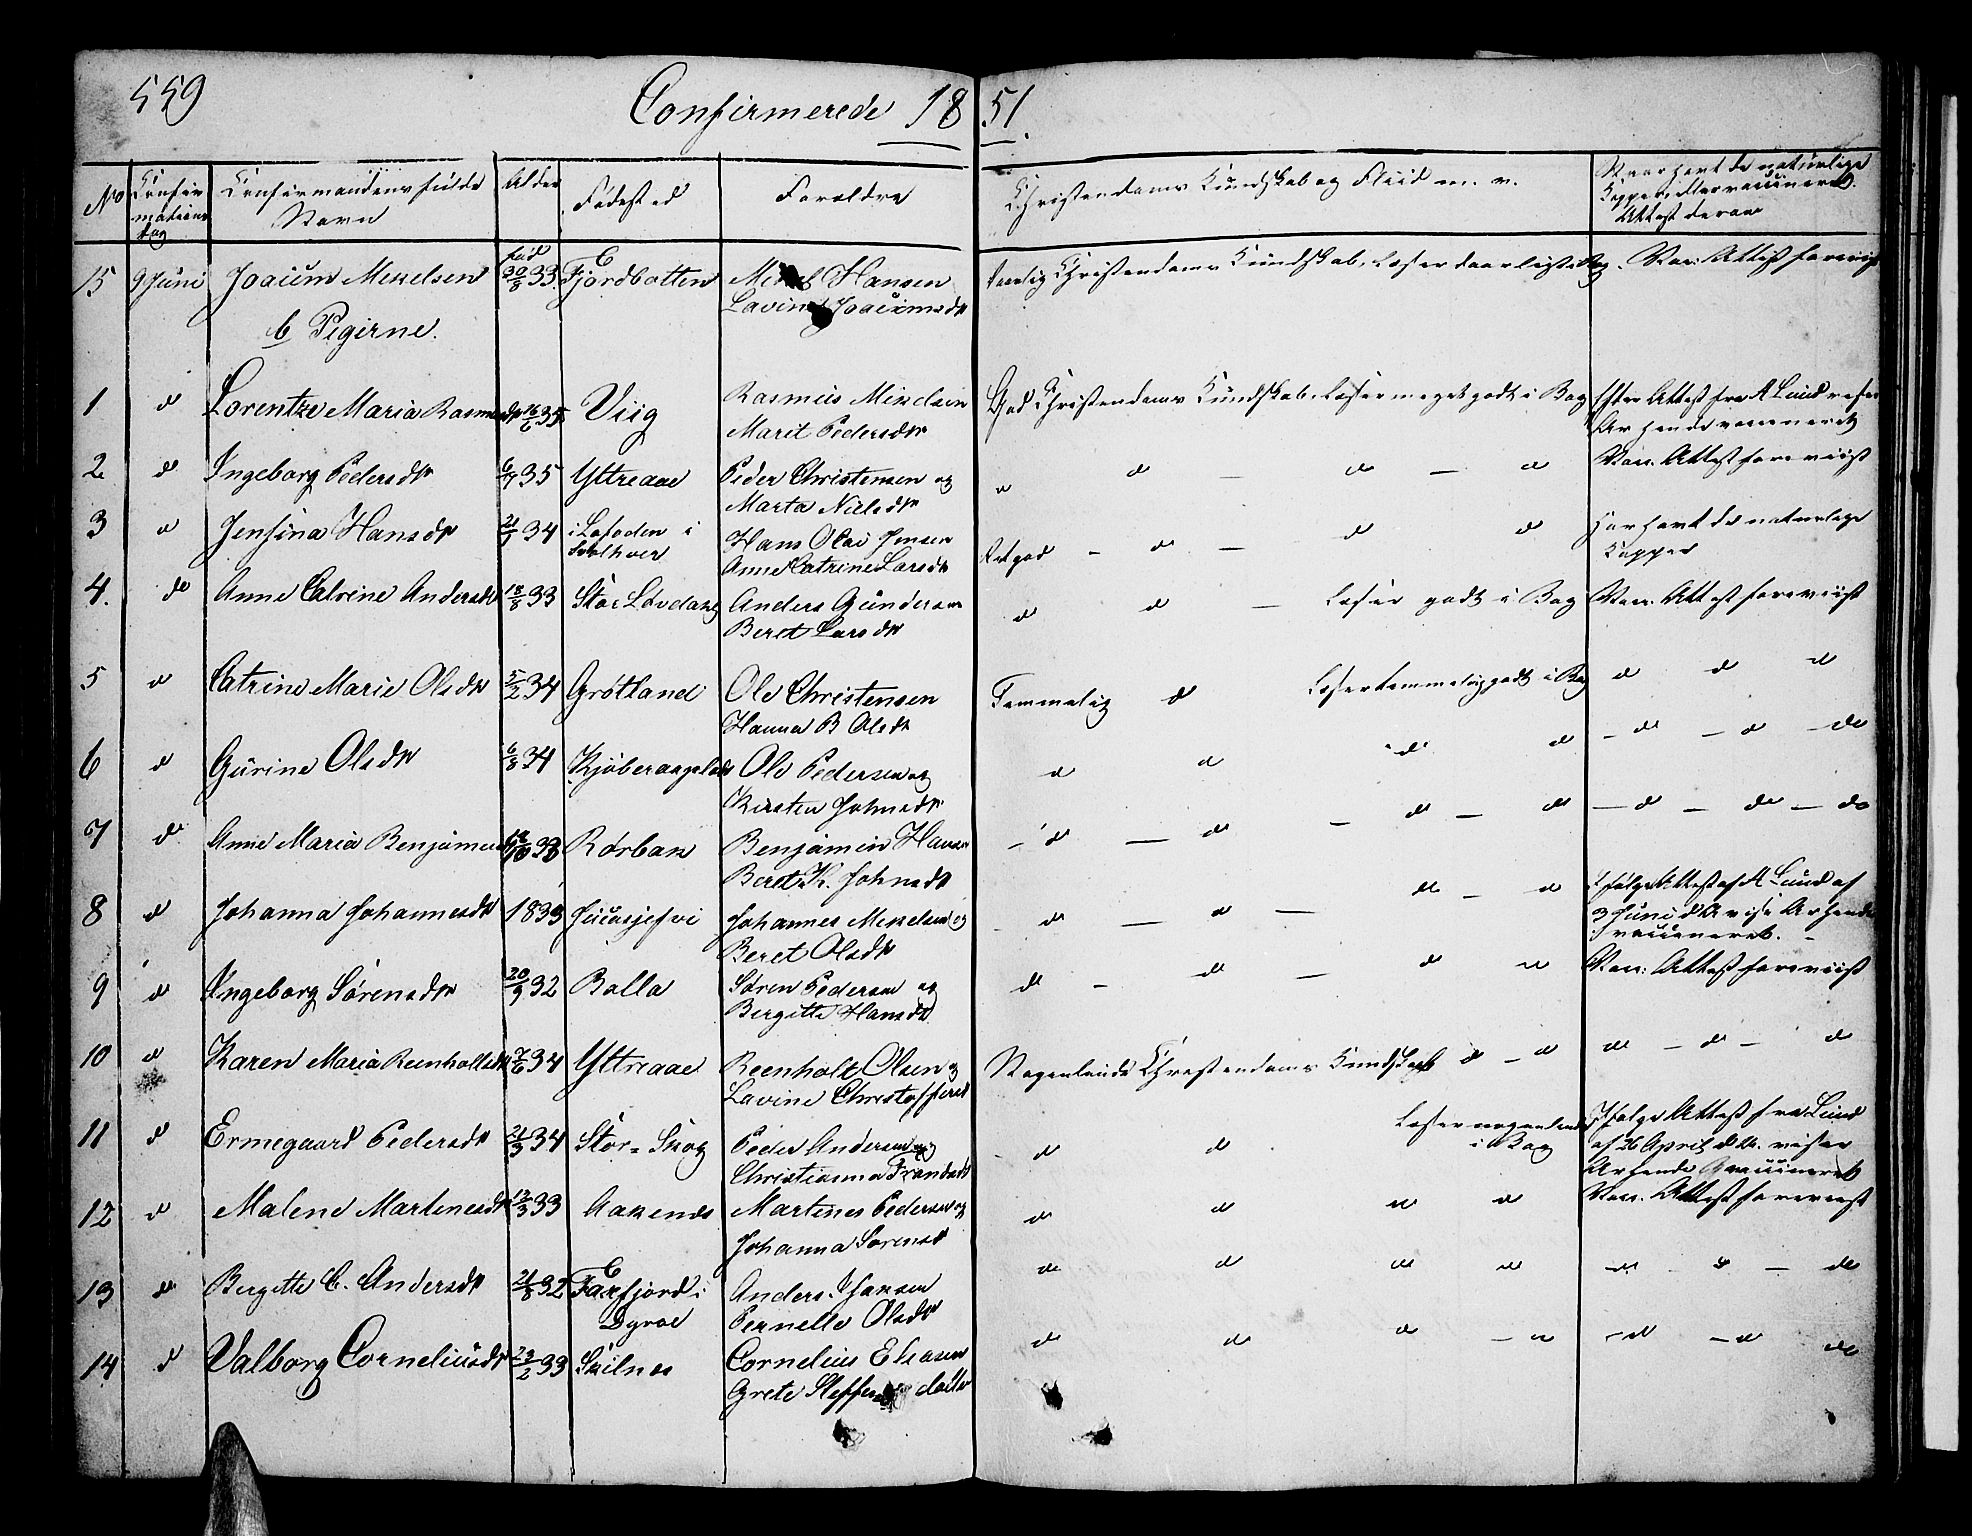 559 Confirmerede 1851.
No Confirmations dag Confirmandens fulde Navn Alder Fødested Forældre Christendoms Kundskab og Fliid m. v. Naar havt de naturlige Kopper eller vaccineret. Attest derom
15 9 Juni Joacim Mikelsen fød 30/8 33 Fjordbotten Mikel Hansen
Lavina Joacimsdtr Christendoms Kundskab, Læser daarligt i Bog. Vac: Attest foreviist
b Pigerne.
1 d Lorentze Maria Rasmusdtr 16/6 35 Viig Rasmus Mikelsen
Marit Pedersdtr God Christendoms Kundskab. Læser meget godt i Bog Efter Attest fra A Lund
vaccineret
2 d Ingeborg Pedersdtr 6/7 35 Yttreaae Peder Christensen og
Marta Nielsdtr d d d — d Vac. Attest foreviist
3 d Jensina Hansdtr 34 i Lofoden i Hans Olai Jensen
Anne Catrine Larsdtr Ret god — d — d d Har havt de naturlige
Kopper
4. do Anne Catrine Andersdtr 18/8 33 Stor Løvdang Anders Gundersen
Beret Larsdtr d d — Læser godt i Bog Vac. Attest foreviist
5 d Catrine Marie Olsdtr 5/2 34 Grøtland Ole Christensen
Hanna B Olsdtr Temmelig d Læser temmelig godt i Bog d d d
6 d Gurine Olsdtr 6/8 34 Ole Pedersen og
Kirsten Johnsdtr d d d d — d — d — do
7 d Anne Maria Benjamins Rørbak Benjamin Hansen
Beret K. Johnsdtr — d — d — d — d — d — do — do
8 d Johanna Johannesdtr 1833 Johannes Mikelsen og
Beret Olsdtr d — d — d — d Ifølge Attest af A Lund af
3 Juni
vaccineret. —
9 d Ingeborg Sørensdtr 20/9 32 Balla Søren Pedersen og
Birgitte Hansdtr d — d — d d Vac: Attest foreviist
10 d Karen Maria Reenholtsdtr 34 Yttreaae Reenholt Olsen og
Lavine Christoffersdt Nogenlunde Christendoms Kundskab d — d d — d — d
11 d Ermegaard Pedersdtr 21/3 34 Stor = Skog Peder Andersen og
Christianna Frandsdt d d Læser nogenlunde
i Bog Ifølge Attest fra Lund
af 26 April
vaccineret
12 d Malene Martinesdtr 12/3 33 Aaknes Martines Pedersen og
Johanna Sorensdt d d d d Vac. Attest foreviist
13 d Birgitte C. Andersdtr 21/8 32 Faxfjord i
Dyrøe Anders Hansen
Pernelle Olsdtr d d d d — d d — do
14 d Valborg Corneliusdtr 23/2 33 Skilnes Cornelius Eliasen
Grete Steffens datter d d d — d — d — d do